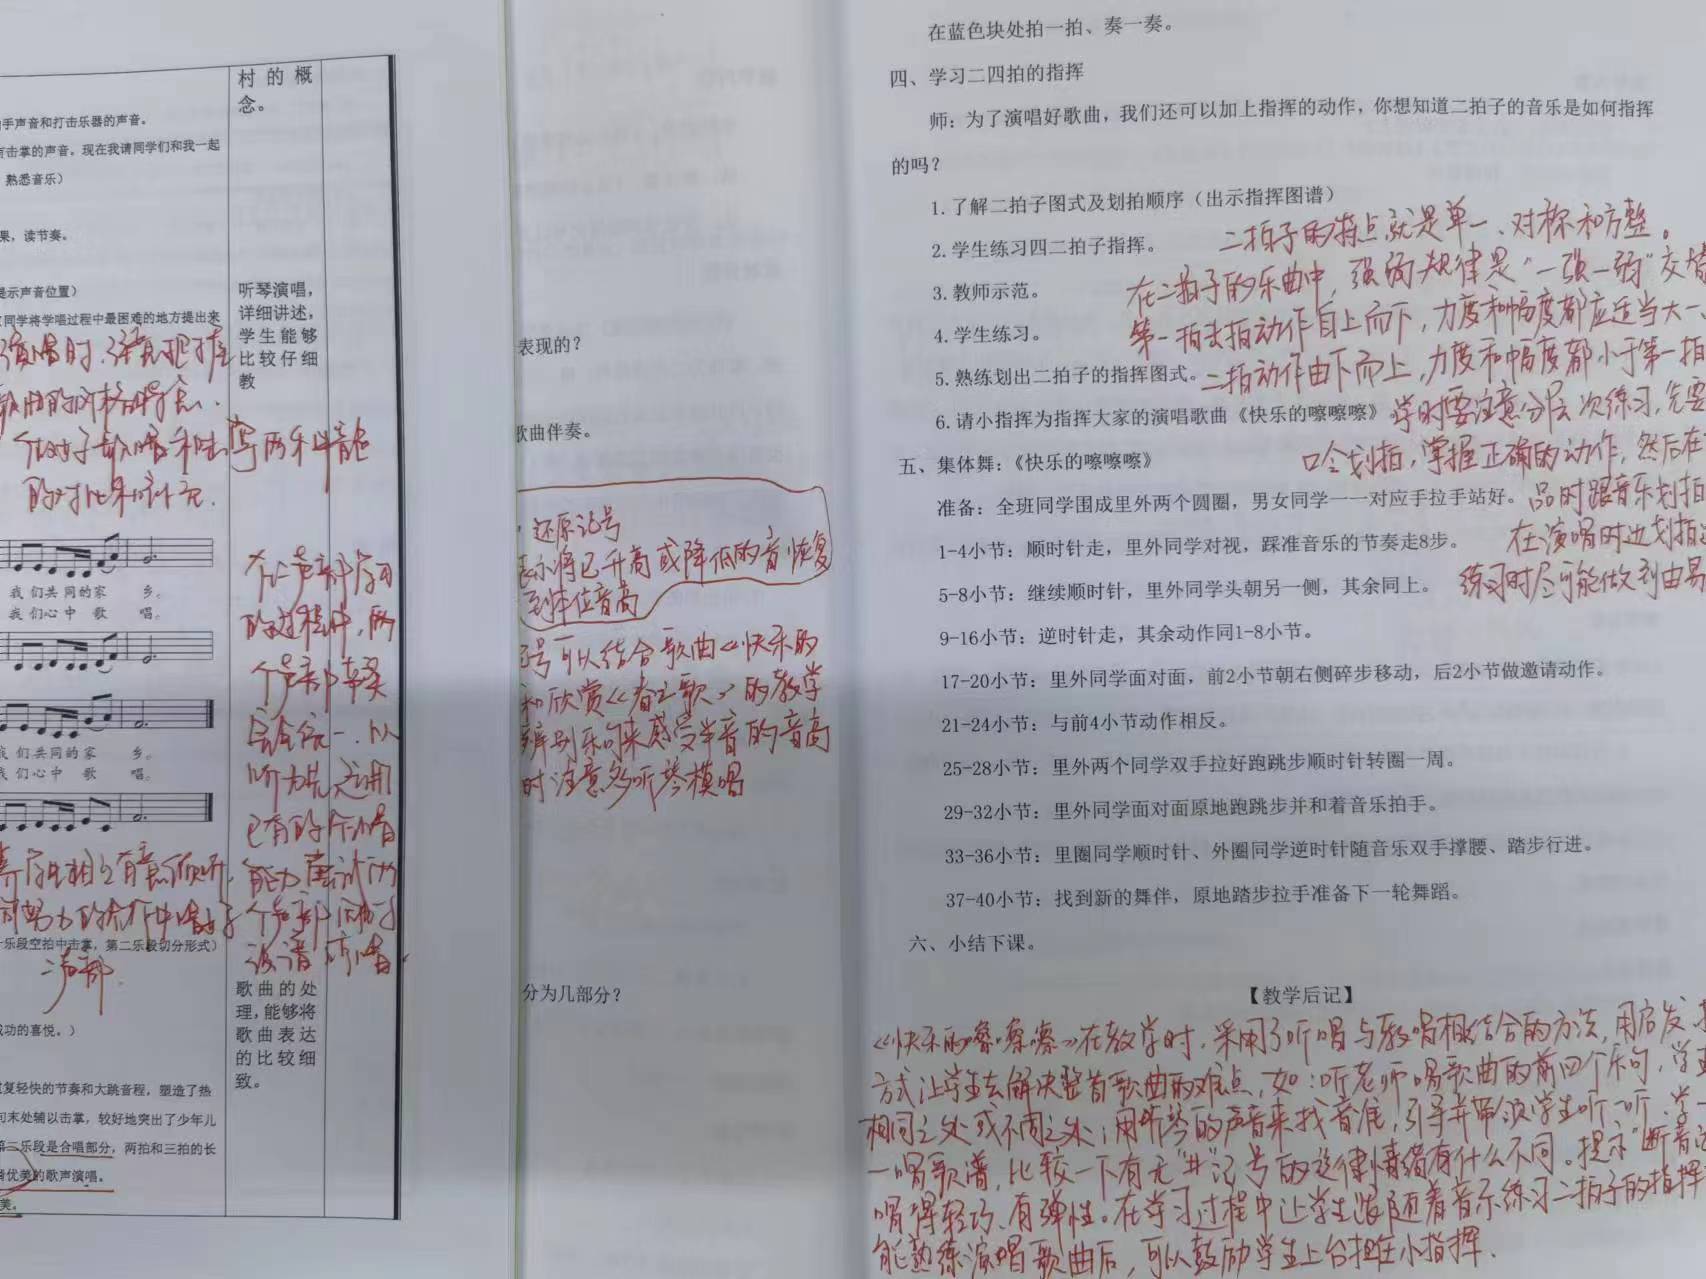 村的概
念。
手声音和打击乐器的声音。
有击掌的声音。现在我请同学们和我一起
熟悉音乐)
果,读节奏。
提示声音位置)
同学将学唱过程中最困难的地方提出来
听琴演唱,
详细讲述,
学生能够
比较仔细
教
演唱时
歌曲的
的对比和补充
我们共同的家 乡。
我们心中歌 唱。
我们共同的家 乡。
我们心中歌 唱。
个二声部合
的过程中,两
个声部
合在一
听为先,运用
已有的
能力尝试两
个声部
二声部
乐段空拍中击掌,第二乐段切分形式)
成功的喜悦。)
歌曲的处
理,能够将
歌曲表达
的比较细
致。
复轻快的节奏和大跳音程,塑造了热
句末处辅以击掌,较好地突出了少年儿
第二乐段是合唱部分,两拍和三拍的长
优美的歌声演唱。
美。
表现的?
歌曲伴奏。
还原记号
表示将已升高或降低的音恢复
到本位音高
号可以结合歌曲《快乐的
和欣赏《春之歌》的教学
辨别乐句来感受半音的音高
时注意多听琴模唱
分为几部分?
在蓝色块处拍一拍、奏一奏。
四、学习二四拍的指挥
师:为了演唱好歌曲,我们还可以加上指挥的动作,你想知道二拍子的音乐是如何指挥
的吗?
1.了解二拍子图式及划拍顺序(出示指挥图谱)
2.学生练习四二拍子指挥。 二拍子的特点就是单一、对称和方整。
3.教师示范。 在二拍子的乐曲中,强弱规律是“一强一弱”交替
4.学生练习。 第一拍击拍动作自上而下,力度和幅度都应适当大一
5.熟练划出二拍子的指挥图式。 二拍动作由下而上,力度和幅度都小于第一拍
6.请小指挥为指挥大家的演唱歌曲《快乐的嚓嚓嚓》 学时要注意分层次练习,先要
五、集体舞:《快乐的嚓嚓嚓》 口令划拍,掌握正确的动作,然后在
准备:全班同学围成里外两个圆圈,男女同学一一对应手拉手站好。 品时跟音乐划拍
1-4小节:顺时针走,里外同学对视,踩准音乐的节奏走8步。 在演唱时边划拍边
5-8小节:继续顺时针,里外同学头朝另一侧,其余同上。 练习时尽可能做到由易
9-16小节:逆时针走,其余动作同1-8小节。
17-20小节:里外同学面对面,前2小节朝右侧碎步移动,后2小节做邀请动作。
21-24小节:与前4小节动作相反。
25-28小节:里外两个同学双手拉好跑跳步顺时针转圈一周。
29-32小节:里外同学面对面原地跑跳步并和着音乐拍手。
33-36小节:里圈同学顺时针、外圈同学逆时针随音乐双手撑腰、踏步行进。
37-40小节:找到新的舞伴,原地踏步拉手准备下一轮舞蹈。
六、小结下课。
【教学后记】
《快乐的嚓嚓嚓》在教学时,采用了听唱与教唱相结合的方法,用启发
方式让学生去解决整首歌曲的难点,如:听老师唱歌曲的前四个乐句,学
相同之处或不同之处;用听琴的声音来找音准,引导并带领学生听一听、学一
一唱歌谱,比较一下有无“#”记号的旋律情绪有什么不同。提示“断音
唱得轻巧、有弹性。在学习过程中让学生跟随着音乐练习二拍子的指挥
能熟练演唱歌曲后,可以鼓励学生上台担任小指挥.